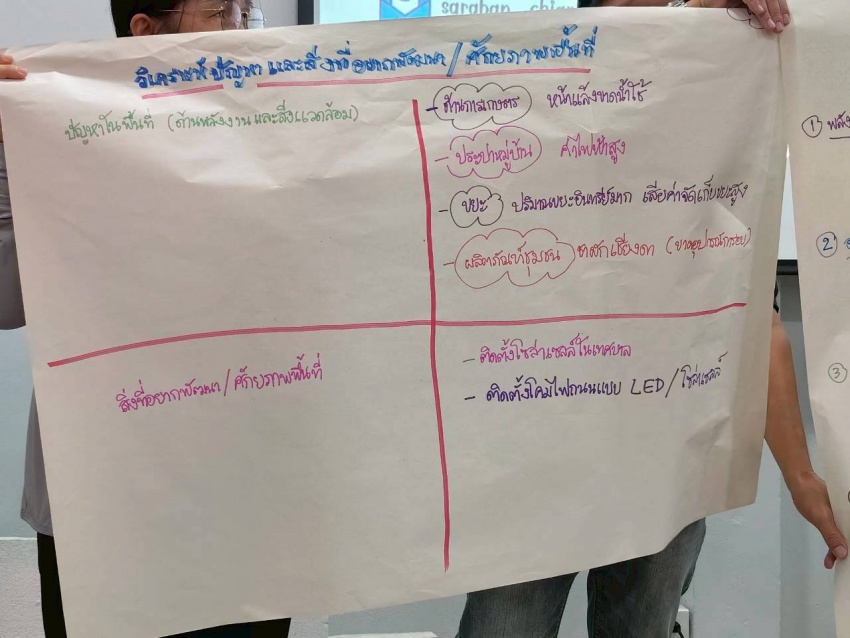 saraban_chian
วิเคราะห์ปัญหา และสิ่งที่อยากพัฒนา / ศักยภาพพื้นที่
ปัญหาในพื้นที่ (ด้านพลังงานและสิ่งแวดล้อม)
- ด้านการเกษตร หน้าแล้งขาดน้ำใช้
- ประปาหมู่บ้าน ค่าไฟฟ้าสูง
- ขยะ ปริมาณขยะอินทรีย์มาก เสียค่าจัดเก็บขยะสูง
- ผลิตภัณฑ์ชุมชน (ขาดอุปกรณ์การอบ)
สิ่งที่อยากพัฒนา / ศักยภาพพื้นที่
- ติดตั้งโซล่าเซลล์ในเทศบาล
- ติดตั้งโคมไฟถนนแบบ LED / โซล่าเซลล์
① พลัง
②
③